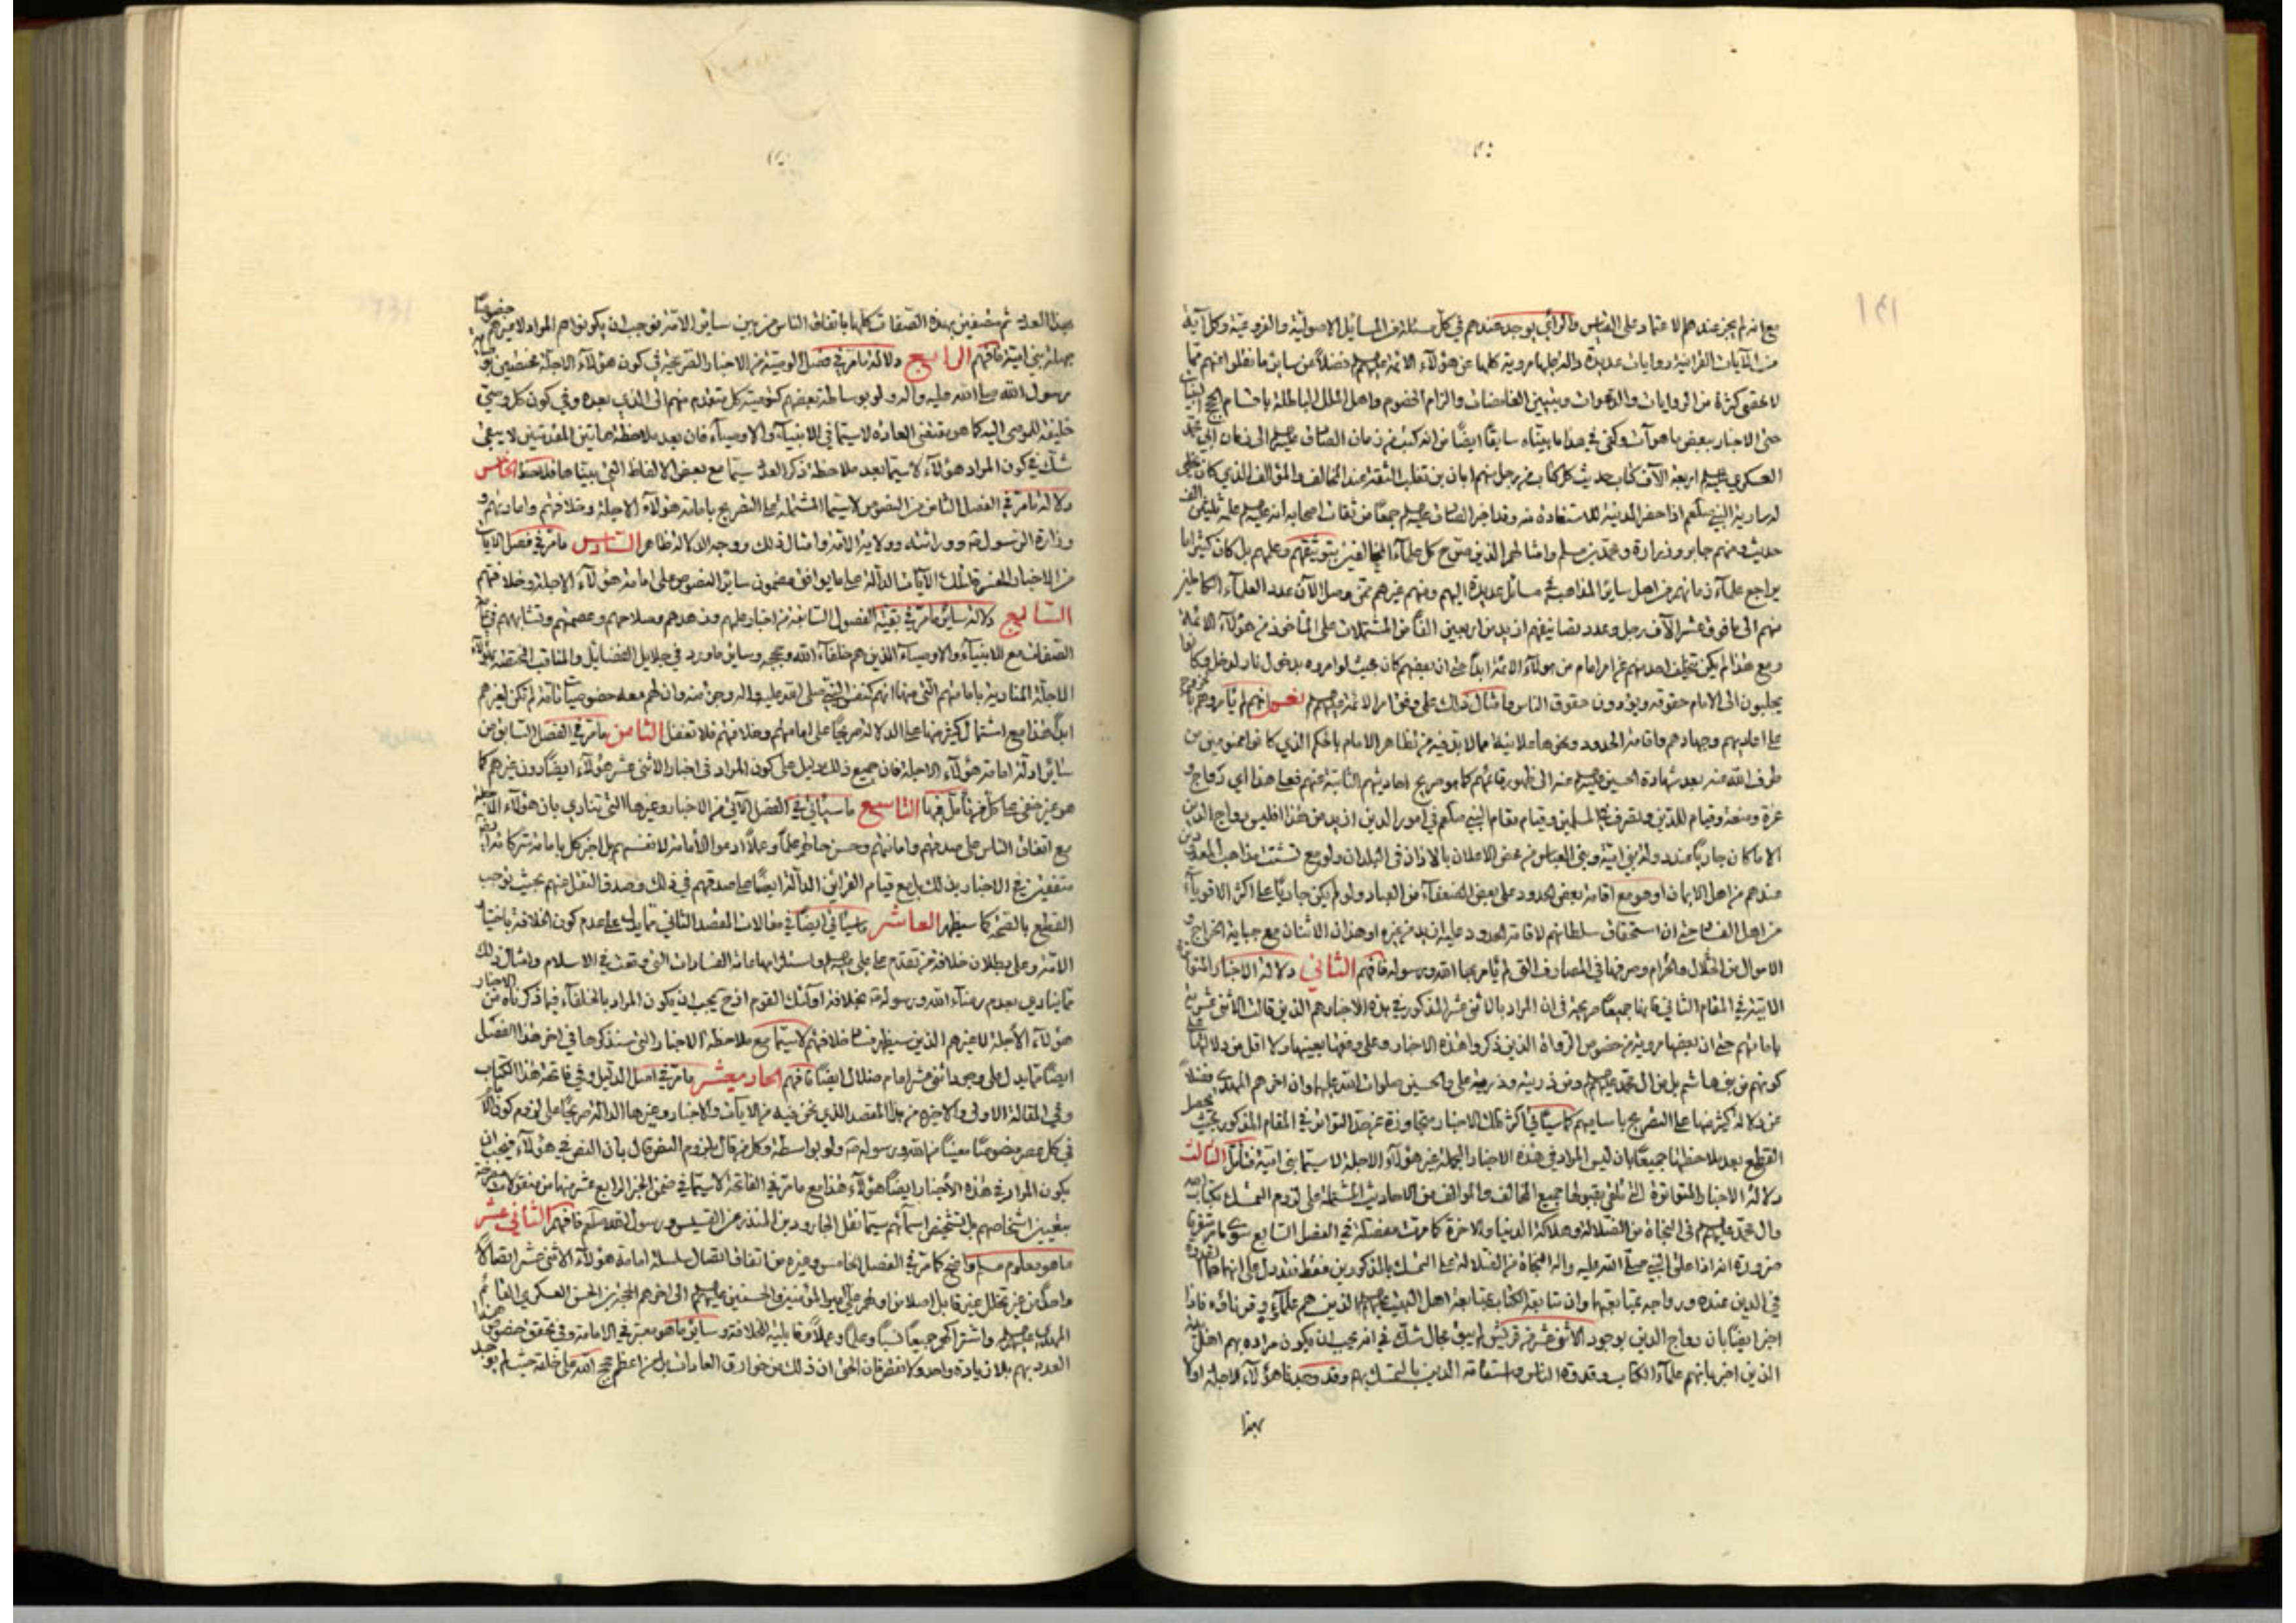 مع انه لم يجز عندهم الاعتماد على القياس والرأي يوجد عندهم في كل مسئلة من المسايل الاصولية والفروعية وكل آية
من الآيات القرانية روايات عديدة دالة جلها مروية كلها عن هؤلاء الائمة عليهم فضلاً عن ساير ما نقلوا عنهم مما
لا تحصى كثرة من الروايات والدعوات وتبيين الغامضات والزام الخصوم واهل الملل الباطلة باقسام الحجج
حتى الاخبار ببعض ما هو آت وكفى في هذا ما بيناه سابقاً ايضاً من انه كتب من زمان الصادق عليه السلم الى زمان ابي محمد
العسكري عليه السلم اربعة الآف كتاب حديث كل كتاب من رجل منهم ابان بن تغلب الثقة عند المخالف والمؤالف الذي كان
له سارية النبي صلعم اذا حضر المدينة للاستفادة منه وقد اخبر الصادق عليه السلم جمعاً من ثقات اصحابه انه عليه السلم علمه ثلثين الف
حديث ومنهم جابر وزرارة ومحمد بن مسلم وامثالهم الذين صرح كل علماء المخالفين بتوثيقهم وعلمهم بل كان كثيراً ما
يراجع علماء زمانهم من اهل ساير المذاهب في مسائل عديدة اليهم ومنهم غيرهم حتى وصل الآن عدد العلماء الكاملين
منهم الى ما فوق عشر الآف رجل وعدد تصانيفهم ازيد من اربعين الفاً من المشتملات على المأخوذ من هؤلاء الائمة
ومع هذا لم يكن تخلف احد منهم عن امر امام من هؤلاء الائمة ابداً حتى ان بعضهم كان بحيث لو امروه بدخول نار لدخل وكانوا
يجلبون الى الامام حقوقه ويؤدون حقوق الناس وامثال ذلك على وفق امر الائمة عليهم السلم نعم انهم لم يأمروهم بالخروج
على اعاديهم وجهادهم واقامة الحدود ونحوها علانية مما لا بد فيه من تظاهر الامام بالحكم الذي كانوا ممنوعين من
طرف الله عنه بعد شهادة الحسين عليه السلم الى ظهور قائمهم كما هو صريح احاديثهم الثابتة عنهم فعلى هذا اي رواج و
عزة ومنعة وقيام للدين وتصرف في المسلمين وقيام مقام النبي صلعم في امور الدين ازيد من هذا افليس رواج الدين
الا ما كان جارياً عند دولة بني امية وبني العباس من محض الاعلان بالاذان في البلدان ولو مع تشتت مذاهب المعدودين
عندهم من اهل الايمان او هو مع اقامة بعض الحدود على بعض الضعفاء من العباد ولو لم يكن جارياً على اكثر الاقوياء
من اهل الفساد حتى ان استحقاق سلطانهم لاقامة الحدود عليه ازيد من غيره او هذان الاثنان مع جباية الخراج و
الاموال من الحلال والحرام وصرفها في المصارف التي لم يأمر بها الله ورسوله فافهم الثاني دلالة الاخبار المتقدمة
الاتية في المقام الثاني فانها جميعاً صريحة في ان المراد بالاثنى عشر المذكور في هذه الاخبار هم الذين قالت الاثنى عشرية
بامامتهم حتى ان بعضها مروية من خصوص الرواة الذين ذكروا هذه الاخبار وعلى وفقها بعينها ولا اقل من دلالتها على
كونهم من بني هاشم بل من ال محمد عليهم السلم ومن ذريته وذرية علي والحسين صلوات الله عليهما وان اخرهم المهدي فضلاً
عن دلالة كثير منها على التصريح باساميهم كما سيأتي اكثر تلك الاخبار متجاوزة عن حد التواتر في المقام المذكور بحيث يحصل
القطع بعد ملاحظتها جميعاً بان ليس المراد في هذه الاخبار المجملة غير هؤلاء الاجلة لا سيما بني امية فتأمل الثالث
دلالة الاخبار المتواترة التي تلقى بقبولها جميع المخالف والمؤالف من الاحاديث المشتملة على لزوم التمسك بكتاب الله
وال محمد عليهم السلم في النجاة من الضلالة وهلاكة الدنيا والاخرة كما مرت مفصلة في الفصل السابع
ضرورة انه اذا علق النبي صلى الله عليه واله النجاة من الضلالة على التمسك بالمذكورين فقط فقد دل على انهما هما
في الدين عنده ورواجه بمتابعتهما وان متابعة الكتاب بمتابعة اهل البيت عليهم السلم الذين هم علماؤه وقرناؤه فاذا
اخبر ايضاً بان رواج الدين بوجود الاثنى عشر من قريش لم يبق مجال شك في انه يجب ان يكون مراده بهم اهل بيته
الذين اخبر بانهم علماء الكتاب وقدوة الناس واستقامة الدين بالتمسك بهم وقد وجدنا هؤلاء الاجلة اولاً
بهذا
بهذا العدد ثم متصفين بهذه الصفات كلها باتفاق الناس من بين ساير الامة فوجب ان يكونوا هم المراد لا غيرهم خصوصاً
جهلة بني امية فافهم الرابع دلالة ما مر في فصل الوصية من الاخبار الصريحة في كون هؤلاء الاجلة مختصين بوصاية
رسول الله صلى الله عليه واله ولو بوساطة بعضهم كوصية كل متقدم منهم الى الذي بعده وفي كون كل وصي
خليفة للموصى اليه كما هو مقتضى العادة لا سيما في الانبياء والاوصياء فان بعد ملاحظة هاتين المقدمتين لا يبقى
شك في كون المراد هؤلاء لا سيما بعد ملاحظة ذكر العدد سيما مع بعض الالفاظ التي بيناها فلاحظ الخامس
دلالة ما مر في الفصل الثامن من النصوص لا سيما المشتملة على التصريح بامامة هؤلاء الاجلة وخلافتهم وامارتهم و
وزارة الرسول ووراثته وولاية الامة وامثال ذلك ووجه الدلالة ظاهر السادس ما مر في فصل الآيات
من الاخبار المفسرة لتلك الآيات الدالة على ما يوافق مضمون ساير النصوص على امامة هؤلاء الاجلة وخلافتهم
السابع دلالة ساير ما مر في بقية الفصول السابقة من اخبار علمهم وزهدهم وصلاحهم وعصمتهم وتشابههم في
الصفات مع الانبياء والاوصياء الذين هم خلفاء الله وحججه وساير ما ورد في جلايل الفضايل والمناقب المختصة بهؤلاء
الاجلة المنادية بامامتهم التي منها انهم كنفس النبي صلى الله عليه واله وجزء منه وان لهم معه خصوصيات تامة لم تكن لغيرهم
ابداً هذا مع اشتمال كثير منها على الدلالة صريحاً على امامتهم وخلافتهم فلا تغفل الثامن ما مر في الفصل السابق من
ساير ادلة امامة هؤلاء الاجلة فان جميع ذلك دليل على كون المراد في اخبار الاثنى عشر هؤلاء ايضاً دون غيرهم كما
هو غير خفي على كل من تأمل فيها التاسع ما سيأتي في الفصل الآتي من الاخبار وغيرها التي تنادي بان هؤلاء الاجلة
مع اتفاق الناس على صدقهم وامانتهم وحسن حالهم علماً وعملاً ادعوا الأمامة لانفسهم بل اخبر كل بامامة شركائه
متفقين في الاخبار بذلك بل مع قيام القرائن الدالة ايضاً على صدقهم في ذلك وصدق النقل عنهم بحيث يوجب
القطع بالصحة كما سيظهر العاشر ما سيأتي ايضاً في مقالات المقصد الثاني مما يدل على عدم كون الخلافة باختيار
الامة وعلى بطلان خلافة من تقدم على علي عليه السلم واستلزامها عامة الفسادات التي وقعت في الاسلام وامثال ذلك
مما ينادي بعدم رضاء الله ورسوله بخلافة اولئك القوم اذ ح يجب ان يكون المراد بالخلفاء فيما ذكرناه من الاخبار
هؤلاء الأجلة لا غيرهم الذين سيظهر فساد خلافتهم لا سيما مع ملاحظة الاخبار التي سنذكرها في اخر هذا الفصل
ايضاً مما يدل على وجود اثني عشر امام ضلال ايضاً فافهم الحاد يعشر ما مر في اصل الدليل وفي فاتحة هذا الكتاب
وفي المقالة الاولى والاخيرة من هذا المقصد الذي نحن فيه من الآيات والاخبار وغيرها الدالة صريحاً على لزوم كون الامام
في كل عصر منصوصاً معيناً من الله ورسوله ولو بواسطة وكل من قال بلزوم النص قال بان النص في هؤلاء فيجب ان
يكون المراد في هذه الأخبار ايضاً هؤلاء هذا مع ما مر في الفاتحة لا سيما في ضمن الخبر الرابع عشر منها من منقولات
بتعيين اشخاصهم بل تشخيص اسمآئهم سيما نقل الجارود بن المنذر عن القس ورسول الله صلعم فافهم الثاني عشر
ما هو معلوم مسلم واضح كما مر في الفصل الخامس وغيره من اتفاق اتصال سلسلة امامة هؤلاء الاثنى عشر اتصالاً
واحداً من غير تخلل غير قابل اصلا من اولهم علي امير المؤمنين والحسنين عليهم السلم الى اخرهم الحجة بن الحسن العسكري القائم
المهدي عليه السلم واشتراكهم جميعاً نسباً وعلماً وعملاً وقابلية للخلافة وساير ما هو معتبر في الامامة وفي تحقق خصوص هذا
العدد بهم بلا زيادة واحد ولا نقص فان الحق ان ذلك من خوارق العادات بل من اعظم حجج الله على خلقه حيث لم يوجد